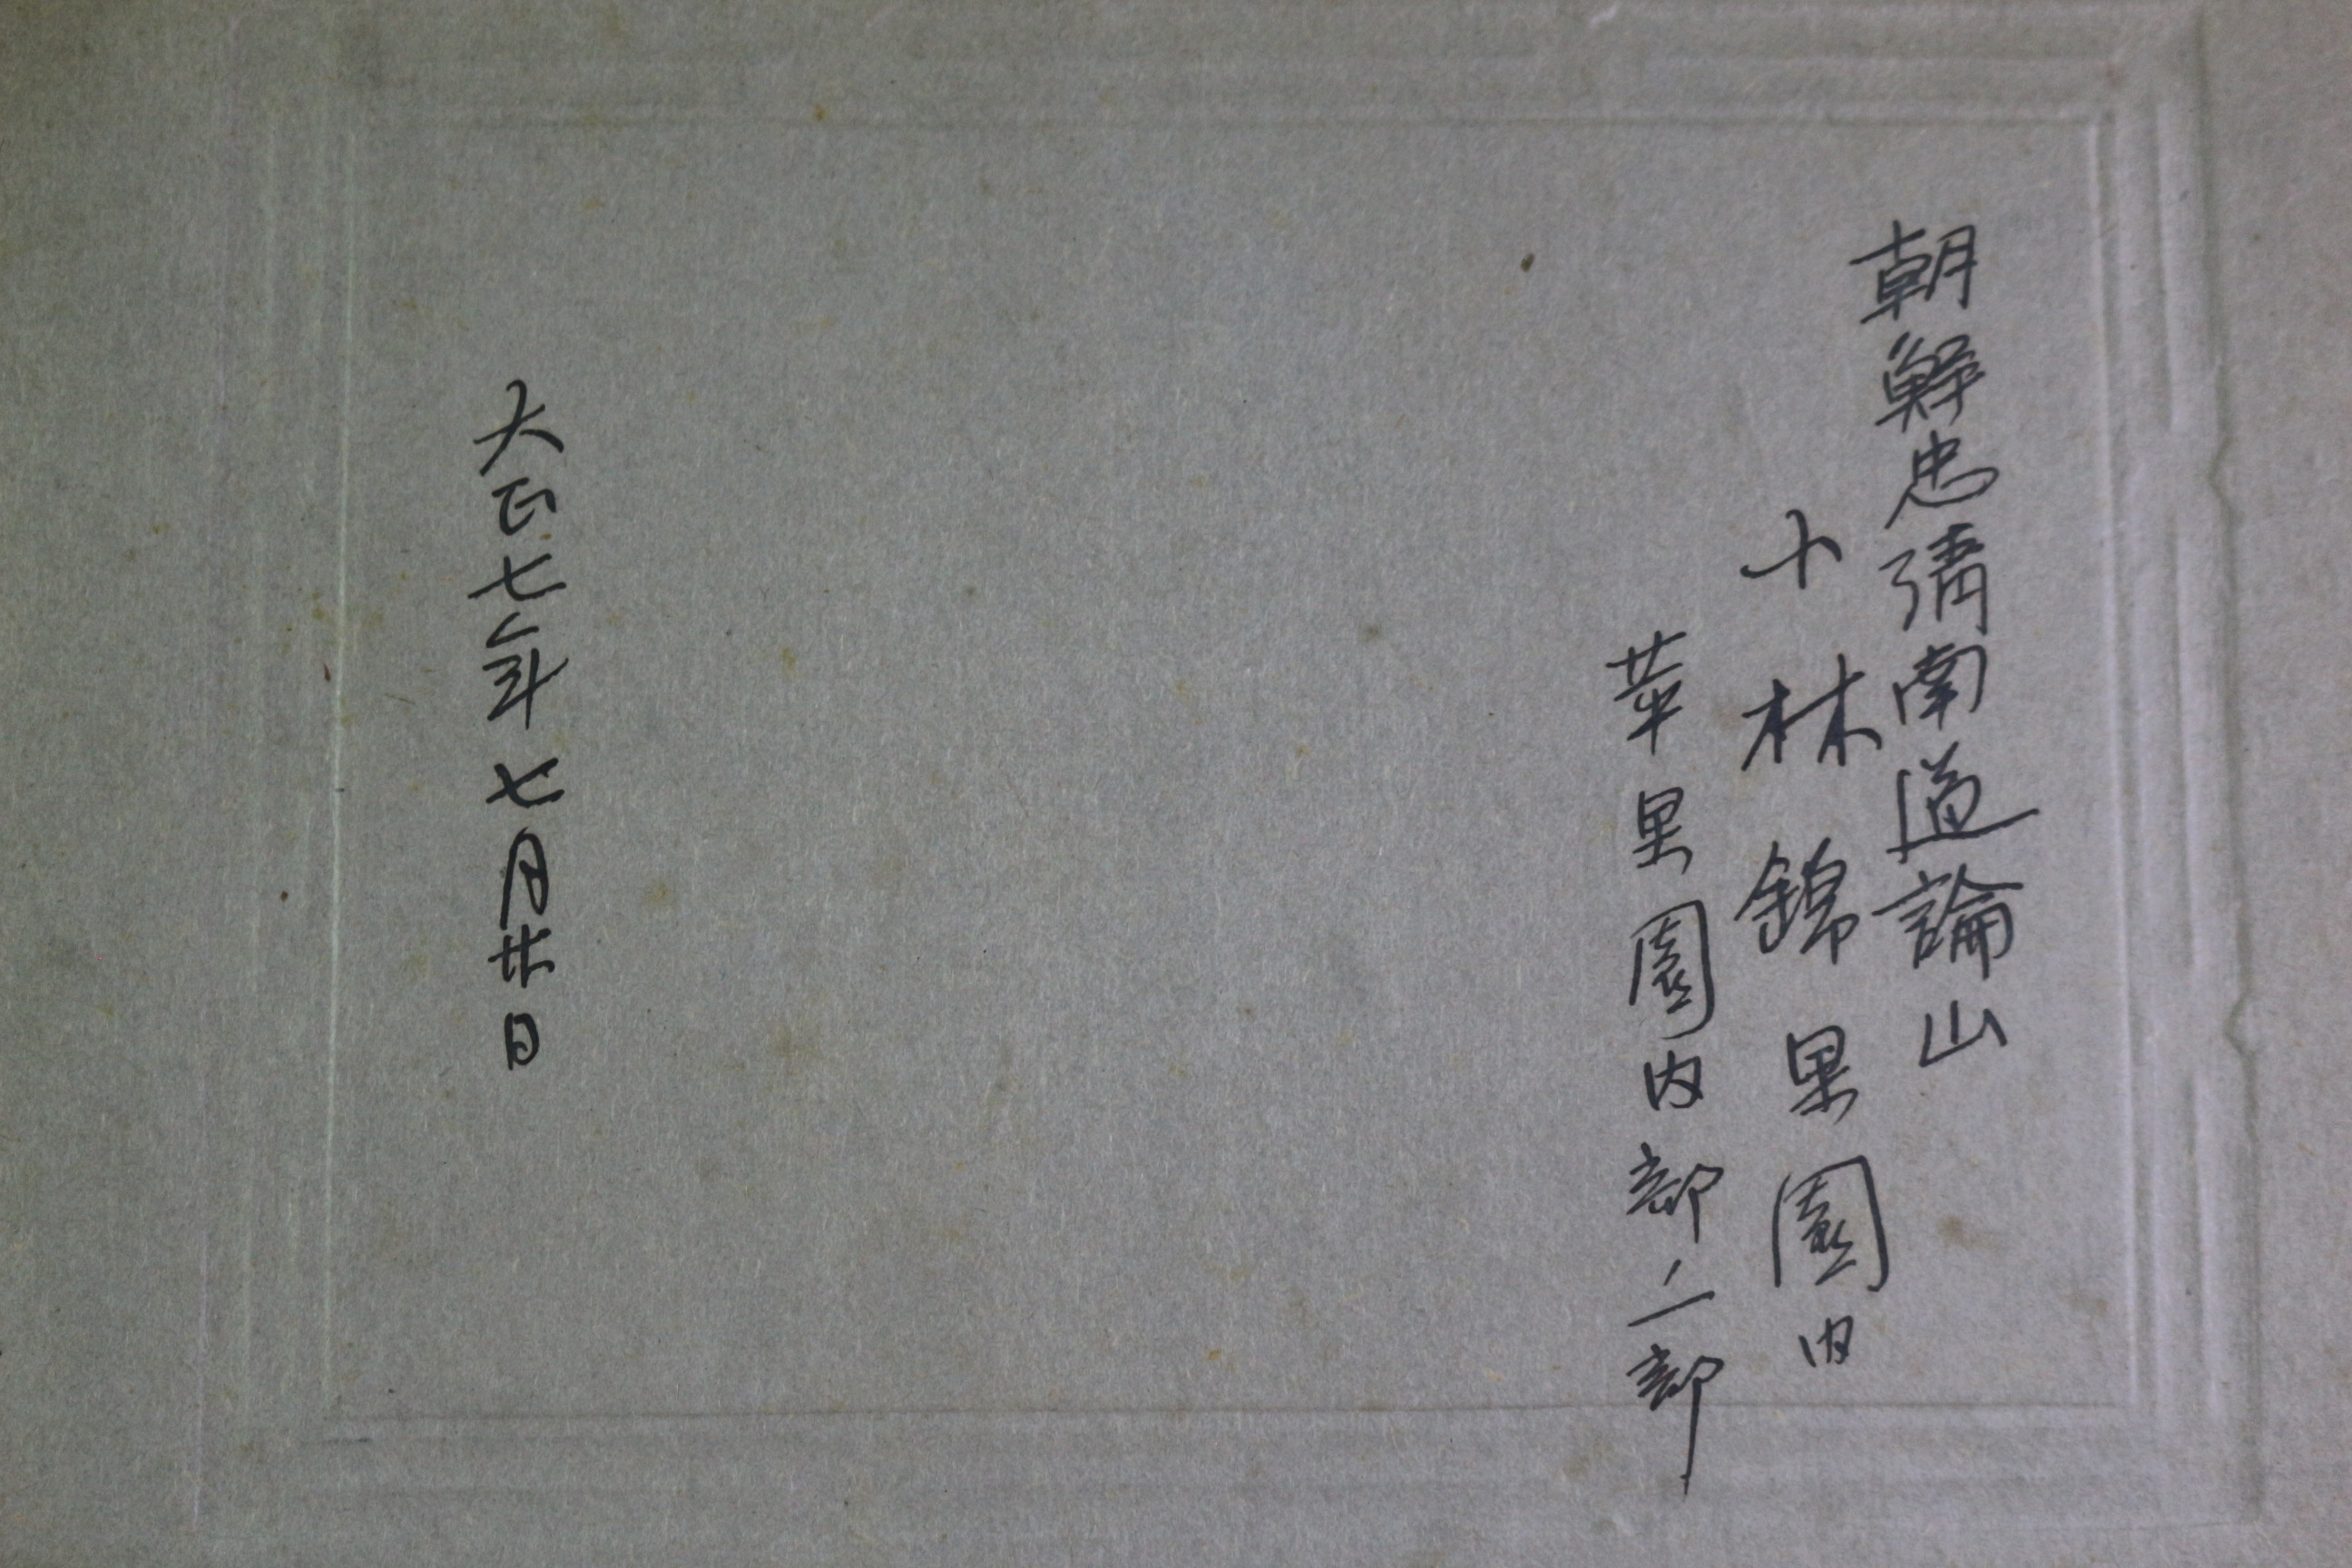 朝鮮忠清南道論山
小林錦果園内
華里園内部ノ一部
大正七年七月廿日